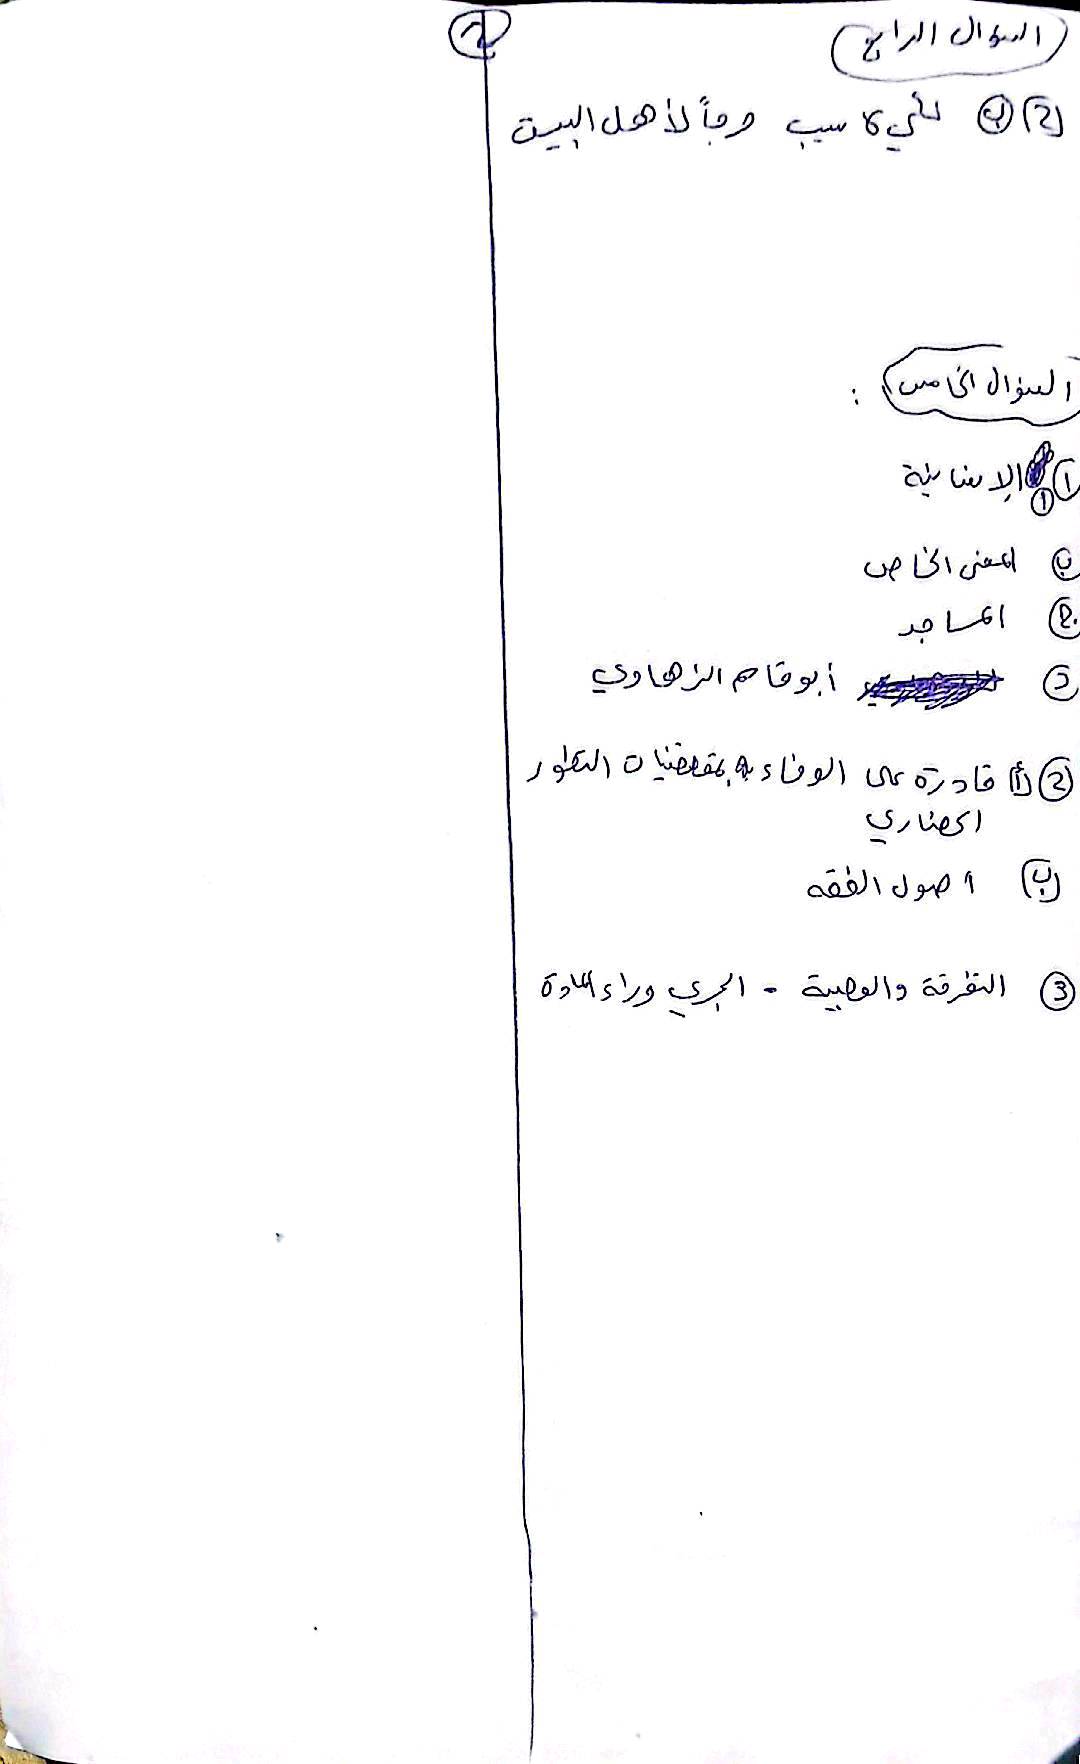 السؤال الرابع
2) ب) لكي لا سبب حرجاً لأهل البيت
السؤال الخامس :
1) أ الإنسانية
ب) المعنى الخاص
ج) المساجد
د) أبو قاسم الزهاوي
2) أ) قادرة على الوفاء بمقتضيات التطور
الحضاري
ب) اصول الفقه
3) التفرقة والعصبية - الجري وراء المادة